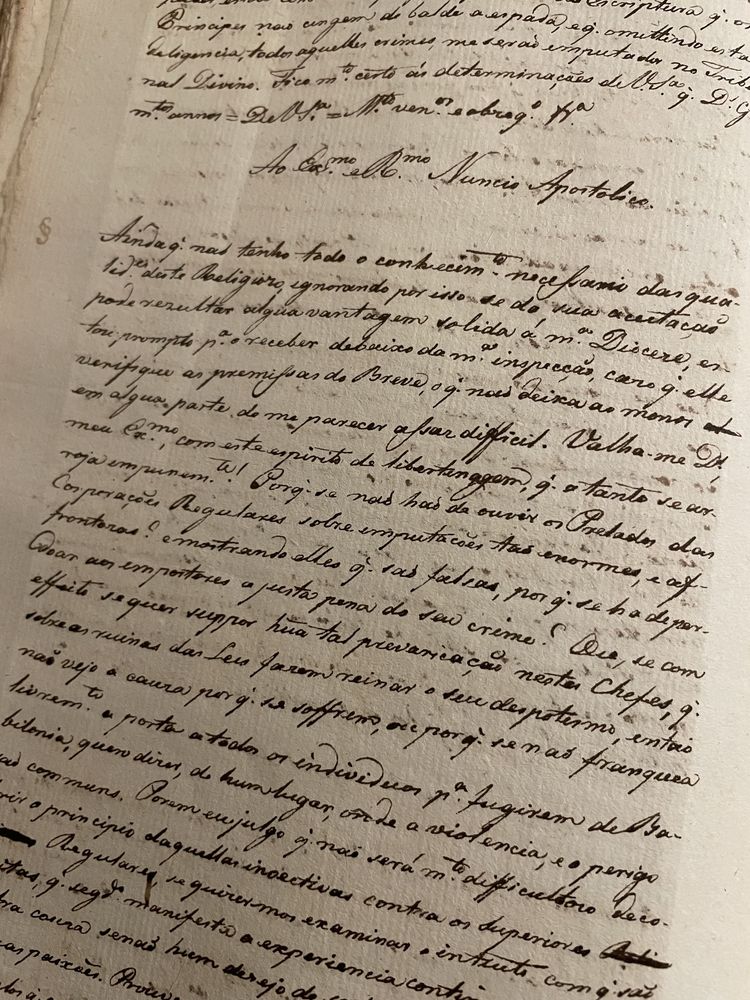 Escriptura q. os
Principes naõ cingem de balde a espada, e q. omittindo esta
deligencia, todos aquelles crimes me seraõ imputados no Tribu
nal Divino. Fico m.to certo ás determinações de V. S.a q. D.s G.
m.tos annos = De V. S.a = M.to ven.or e obrog.o
Ao Ex.mo e R.mo Nuncio Apostolico.
§ Ainda q. naõ tenho todo o conhecim.to necessario das qua-
lid.es deste Religiozo, ignorando por isso se da sua aceitaçaõ
pode rezultar algua vantagem solida á m.a Diocese, es-
tou prompto p.a o receber debaixo da m.a inspecçaõ, cazo q. elle
verifique as premissas do Breve, o q. naõ deixa ao menos
em algua parte de me parecer assaz difficil. Valha-me D.s,
meu Ex.mo, com este espirito de libertinagem, q. a tanto se ar-
roja impunem.te! Porq. se naõ haõ de ouvir os Prelados das
Corporações Regulares sobre imputações taõ enormes, e af-
frontozas? e mostrando elles q. saõ falsas, por q. se ha de per-
doar aos impostores a justa pena do seu crime? Que, se com
effeito se quer suppor hũa tal prevaricaçaõ nestes Chefes, q.
sobre as ruinas das Leis fazem reinar o seu despotismo, entaõ
naõ vejo a cauza por q. se soffrem, ou por q. se naõ franquea
livrem.te a porta a todos os individuos p.a fugirem de Ba-
bilonia, quero dizer, de hum lugar, onde a violencia, e o perigo
saõ communs. Porem eu julgo q. naõ será m.to difficultozo deco-
brir o principio daquellas invectivas contra os Superiores
Regulares, se quizermos examinar o intuito com q. saõ
q. seg.do manifesta a experiencia
outra couza senaõ hum desejo de
suas paixões.